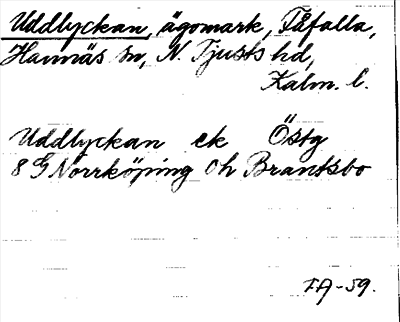 Uddlyckan, ägomark, Fåfalla,
Hannäs sn, N. Tjusts hd,
Kalm. l.
Uddlyckan ek Östg
8 G Norrköping Oh Brantsbo
FA-59.